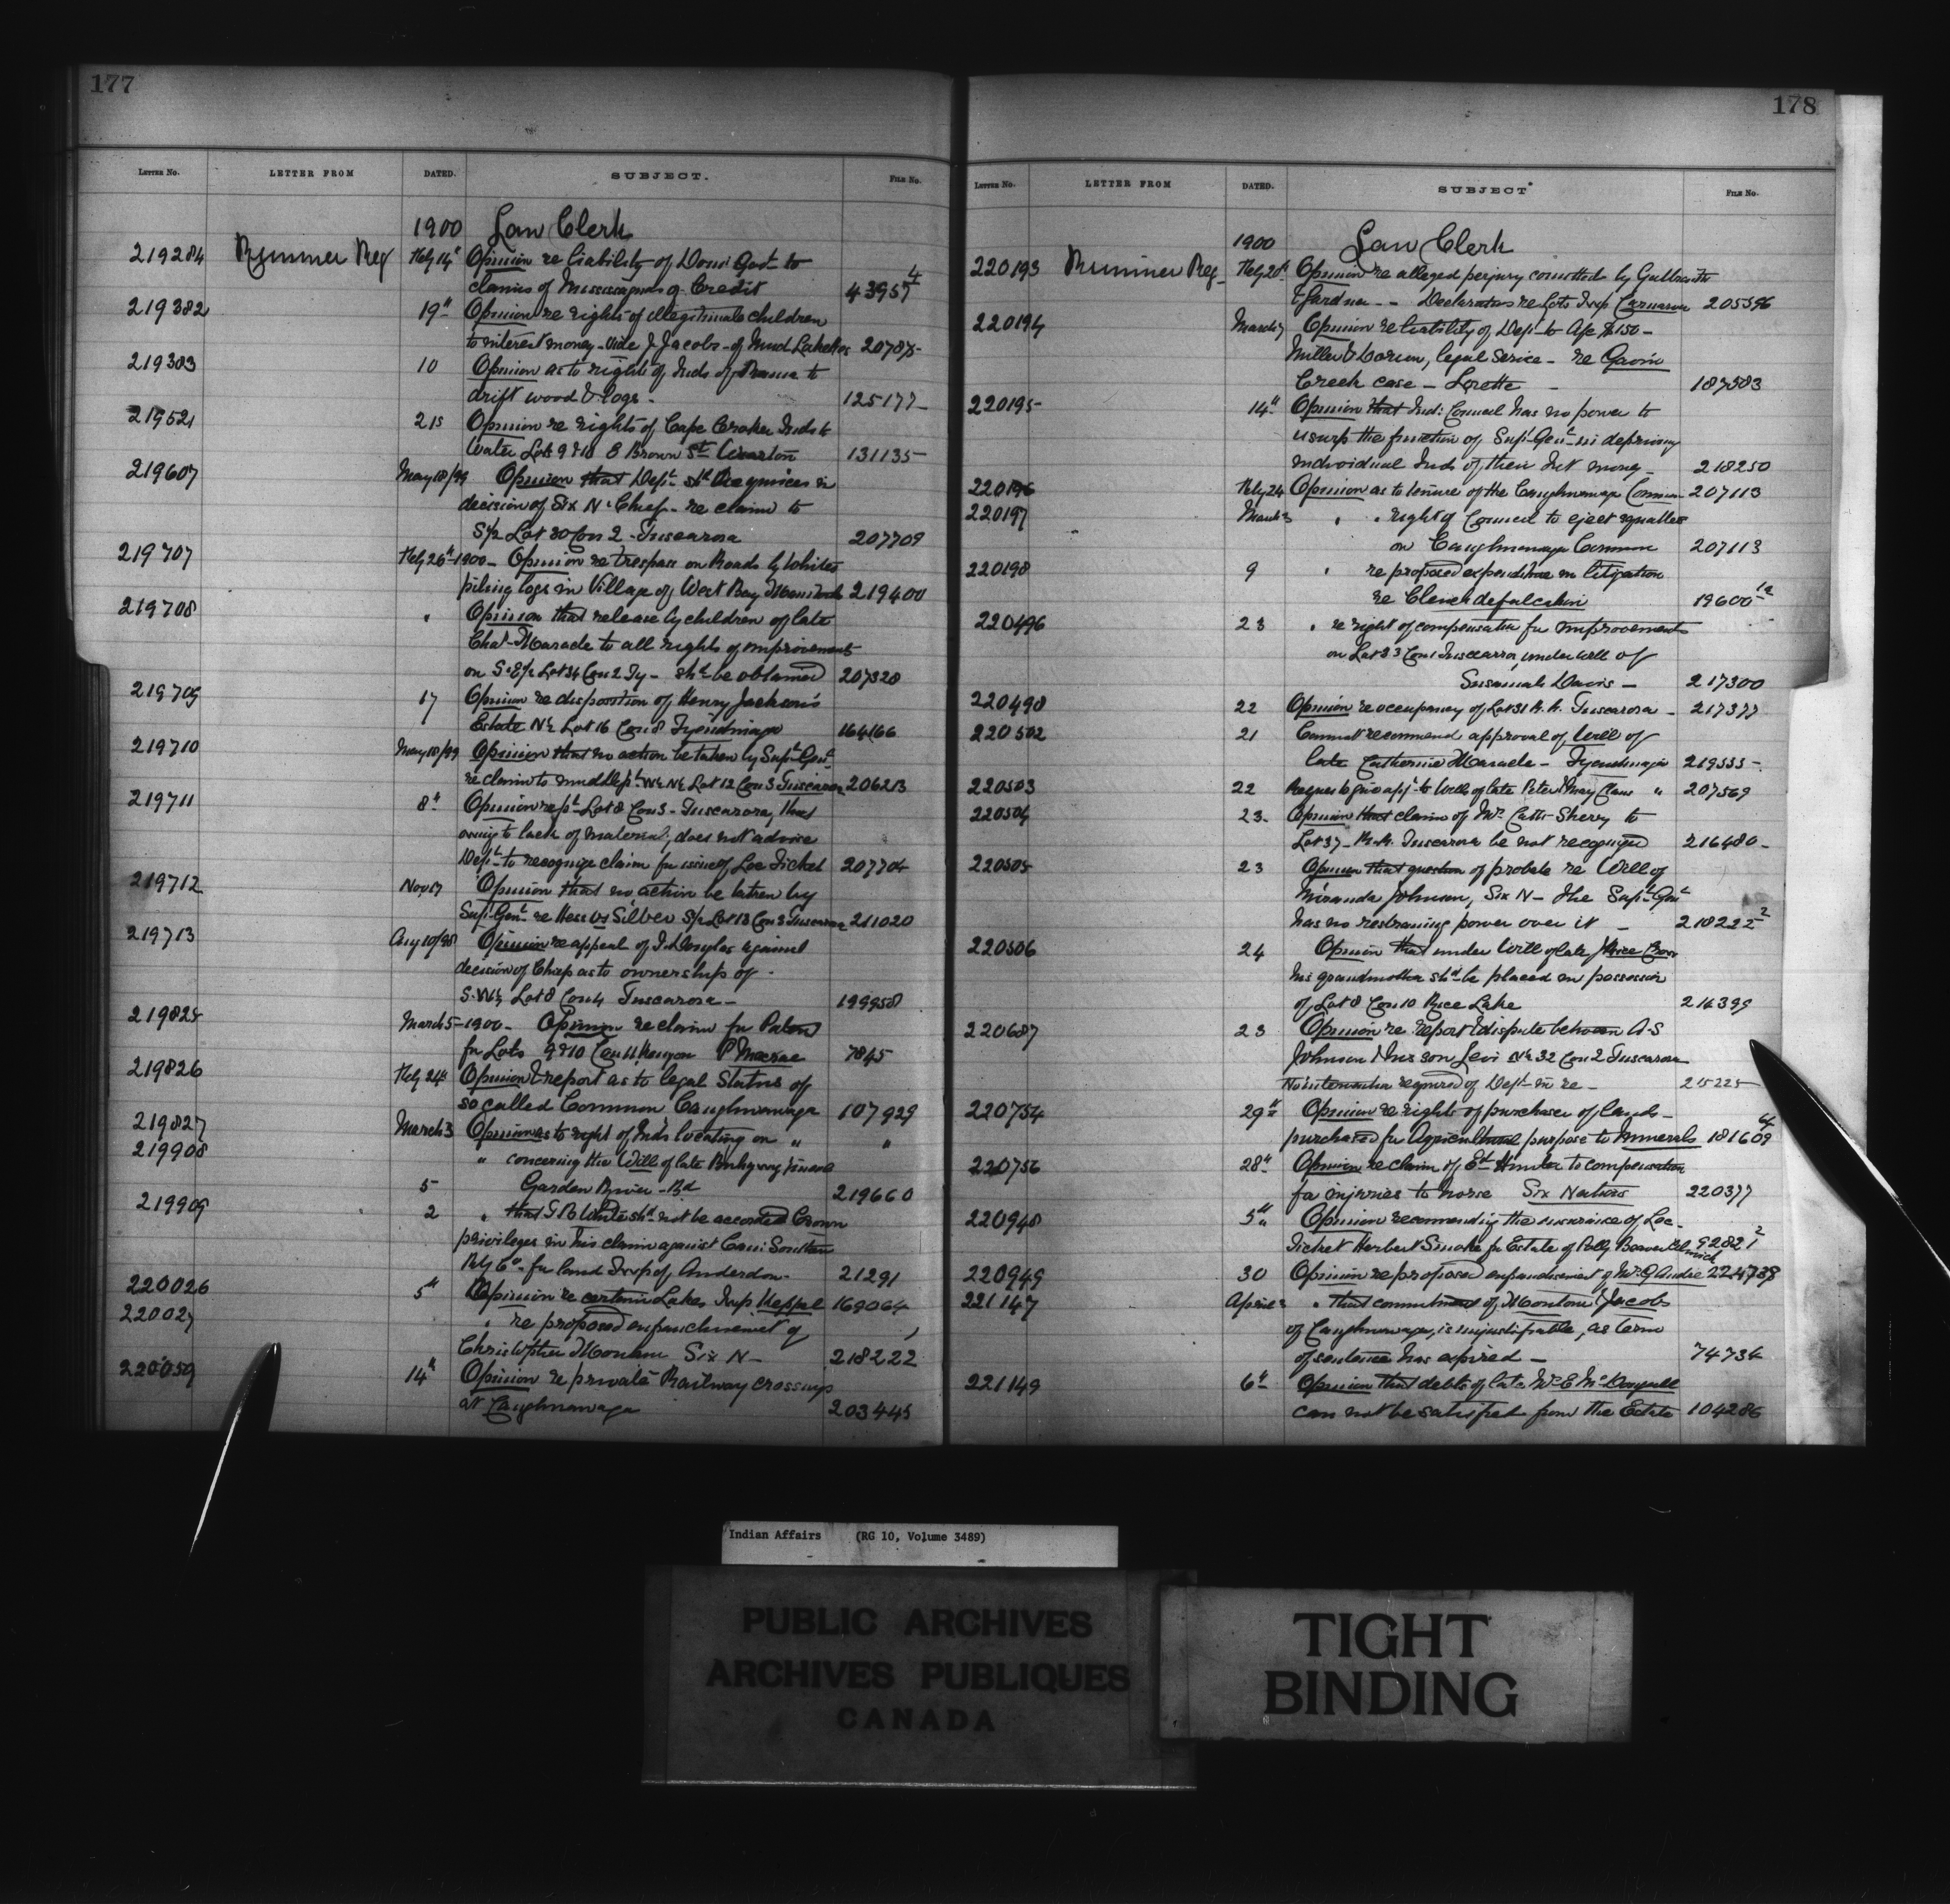 177
LETTER NO. LETTER FROM DATED. SUBJECT. FILE No.
1900 Law Clerk
219284 Rimmer Reg Feby 14" Opinion re liability of Domi Govt to
claims of Mississaguas of Credit 43957 4
219382 19" Opinion re rights of illegitimate children
to interest money - vide J Jacobs - of Mud Lake 207875-
219383 10 Opinion as to rights of Inds of Rama to
drift wood & logs - 125177-
219521 21s Opinion re rights of Cape Croker Inds to
Water Lots 9 & 10 E Brown St Wiarton 131135-
219607 May 18/99 Opinion that Dept shd acquiesce in
decision of Six N. Chiefs - re claim to
S½ Lot 30 Con 2 - Tuscarora 207709
219707 Feby 26"-1900- Opinion re trespass on Roads by Whites
piling logs in Village of West Bay 219400
219708 " Opinion that release by children of late
Chas Maracle to all rights of improvements
on S.E½ Lot 34 Con 2 Ty - shd be obtained 207328
219709 17 Opinion re disposition of Henry Jackson's
Estate N½ Lot 16 Con 8 Tyendinaga 164166
219710 May 18/99 Opinion that no action be taken by Supt Genl
re claim to middle pt W½ N½ Lot 12 Con 3 Tuscarora 206213
219711 8" Opinion re pt Lot 8 Con 3 - Tuscarora, that
owing to lack of material, does not advise
Dept to recognize claim for issue of Loc Ticket 207704
219712 Nov 17 Opinion that no action be taken by
Supt Genl re Hess vs Silver S½ Lot 13 Con 3 Tuscarora 211020
219713 Aug 10/98 Opinion re appeal of against
decision of Chiefs as to ownership of -
S.W½ Lot 8 Con 4 Tuscarora - 199958
219825 March 5-1900- Opinion re claim for Patent
for Lots 9 & 10 Con 11 Kenyon P Macrae 7845
219826 Feby 24" Opinion & report as to legal Status of
so called Common Caughnawaga 107929
219827 March 3 Opinion as to right of Inds locating on " "
219908 " concerning the Will of late
5 Garden River - Bd 219660
219909 2 " that T.B White shd not be accorded Crown
privileges in his claim against Can. Southern
Rly Co - for land Twp of Anderdon - 21291
220026 5" Opinion re certain Lakes Twp Keppel 169064
220027 " re proposed enfranchisement of
Christopher Six N - 218222
220059 14" Opinion re private Railway crossings
at Caughnawaga 203445
178
LETTER NO. LETTER FROM DATED. SUBJECT FILE No.
1900 Law Clerk
220193 Rimmer Reg Feby 20" Opinion re alleged perjury comitted by Galbraith
& Gardner - - Declarations re Lots Twp Carnarvon 205596
220194 March 7 Opinion re liability of Dept to a/c $150 -
Miller & Dorion, legal service - re
Creek case - Lorette - 187583
220195- 14" Opinion that Ind: Council has no power to
usurp the function of Supt Genl in depriving
individual Inds of their Int money - 218250
220196 Feby 24 Opinion as to tenure of the Caughnawaga Common 207113
220197 March 3 " " right of Council to eject squatters
on Caughnawaga Common 207113
220198 9 " re proposed expenditure in litigation
re Clench defalcation 19600 12
220496 23 " re right of compensation for improvements
on Lot 33 Con 1 Tuscarora, under will of
Susannah Davis - 217300
220498 22 Opinion re occupancy of Lot 31 R.R. Tuscarora - 217377
220502 21 Cannot recommend approval of Will of
late Catherine Maracle - Tyendinaga 219555-
220503 22 Request to give appl to Will of late Peter Claus " 207569
220504 23- Opinion that claim of Mrs Cath Sherry to
Lot 37 - R.R. Tuscarora be not recognized 216480-
220505 23 Opinion that question of probate re Will of
Miranda Johnson, Six N - the Supt Genl
has no restraining power over it - 218222 2
220506 24 Opinion that under Will of late
his grandmother shd be placed in possession
of Lot 8 Con 10 Rice Lake 216399
220687 23 Opinion re report & dispute between A-S
Johnson & his son Levi N½ 32 Con 2 Tuscarora
No intervention required of Dept in re - 215225-
220754 29" Opinion re rights of purchaser of lands -
purchased for Agricultural purpose to Minerals 181609 64
220756 28" Opinion re claim of Hunter to compensation
for injuries to horse Six Nations 220377
220948 5" Opinion recommending the issuance of Loc -
Ticket Herbert Smoke for Estate of Polly Beaver Alnwick 92821 2
220949 30 Opinion re proposed enfranchisement of 224738
221147 April 2 " that commitment of & Jacobs
of Caughnawaga, is unjustifiable, as term
of sentence has expired - 74734
221149 6" Opinion that debts of late Mrs E McDougall
can not be satisfied from the Estate 104286
Indian Affairs (RG 10, Volume 3489)
PUBLIC ARCHIVES
ARCHIVES PUBLIQUES
CANADA
TIGHT
BINDING